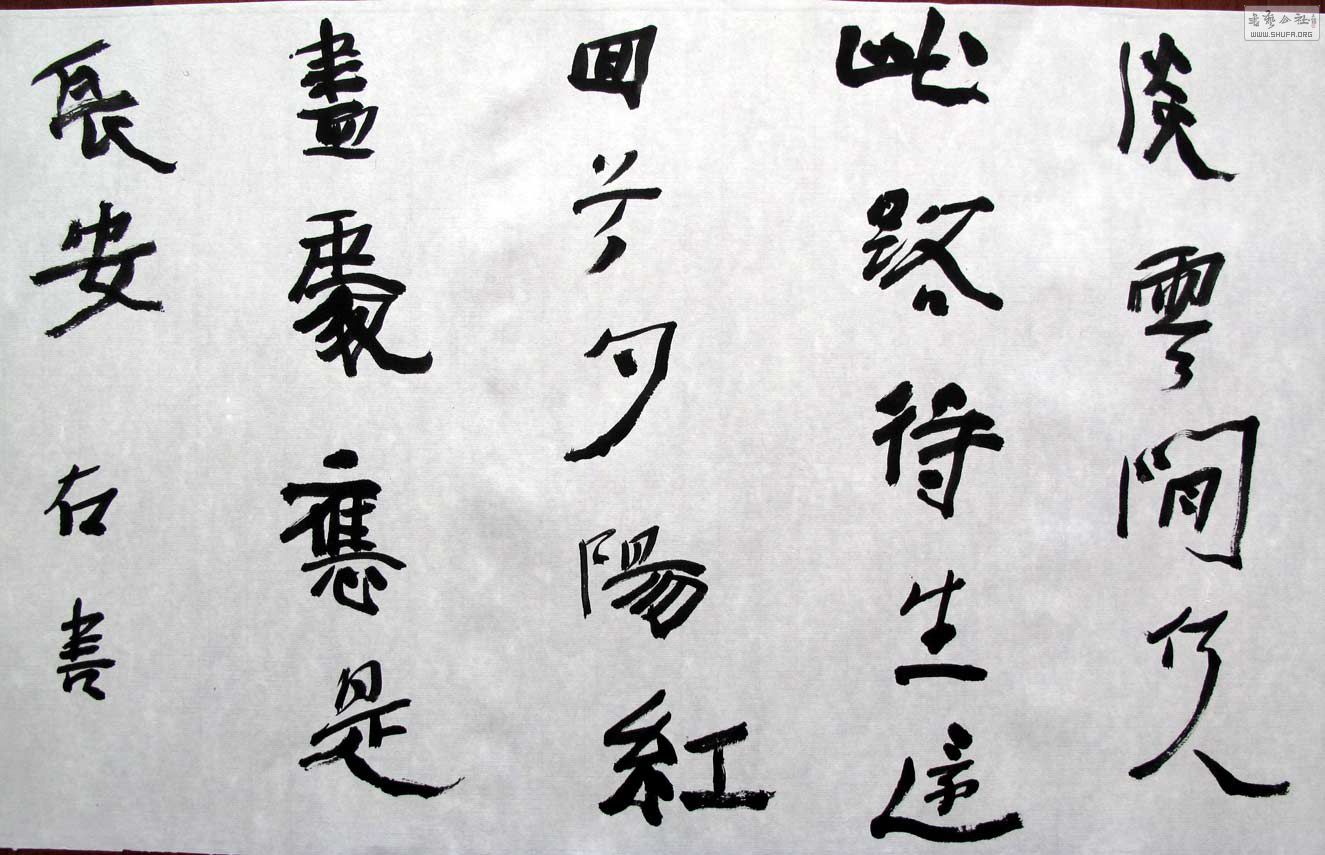 淡雲閒何人
此路得生還
回首夕陽紅
盡處應是
長安 右書
书艺公社
WWW.SHUFA.ORG